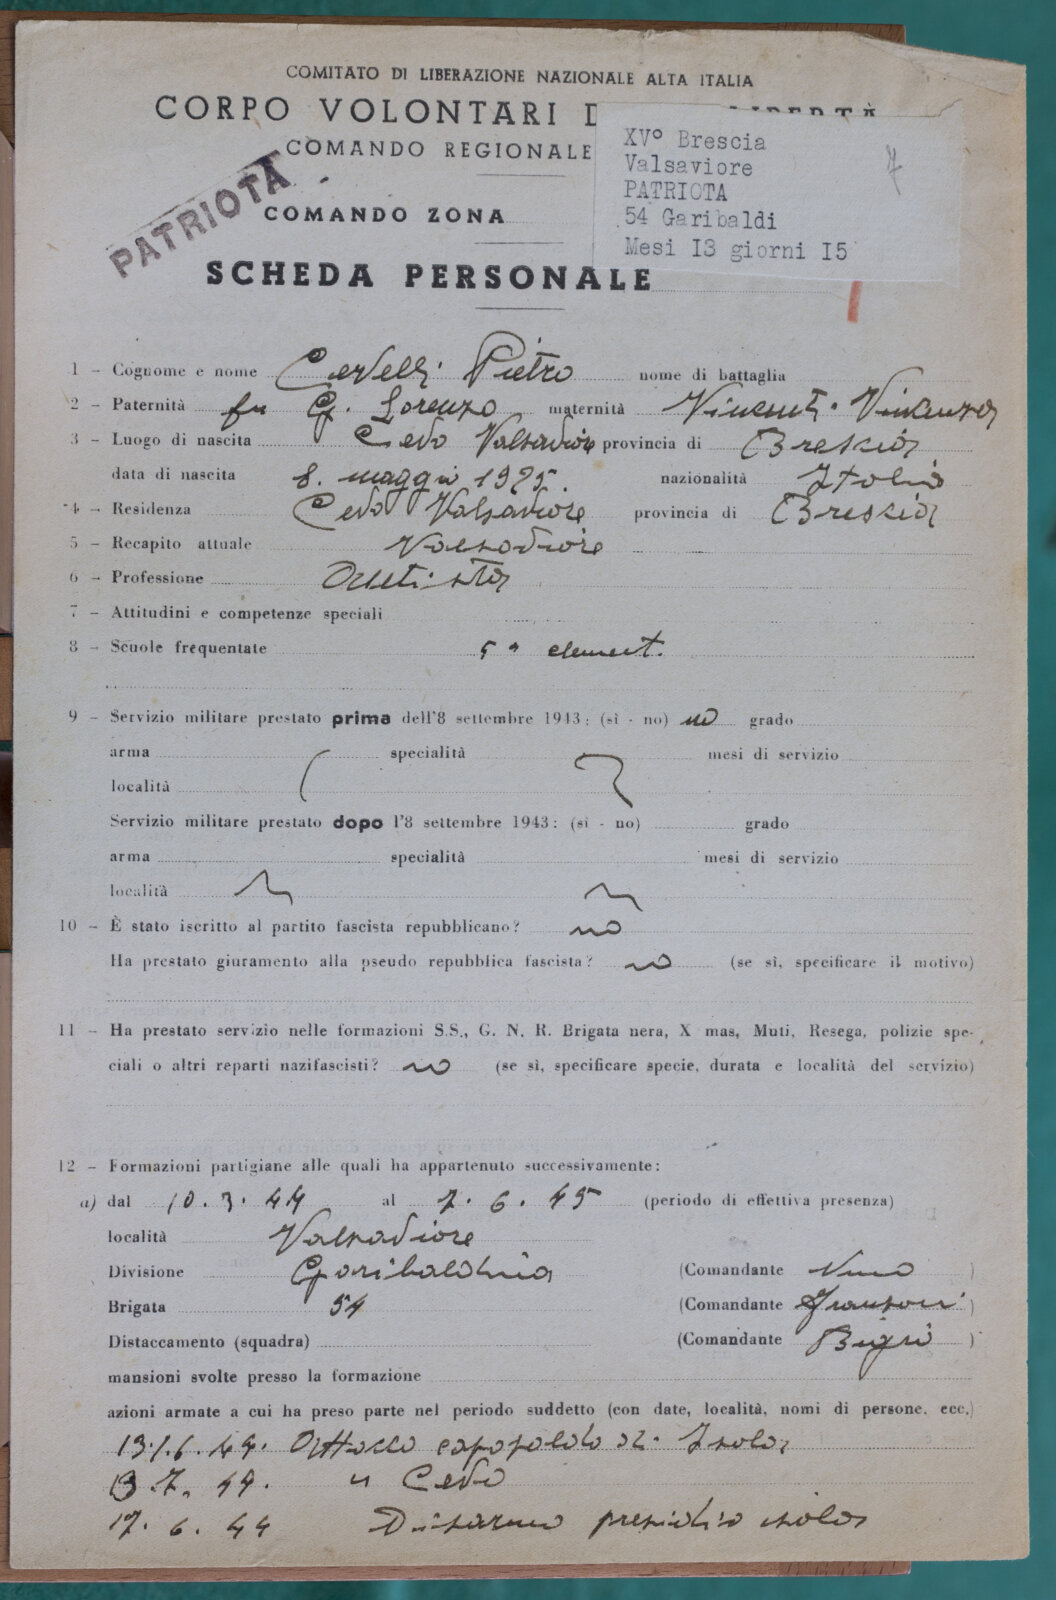 COMITATO DI LIBERAZIONE NAZIONALE ALTA ITALIA
CORPO VOLONTARI D LIBERTÀ
COMANDO REGIONALE
PATRIOTA
COMANDO ZONA
SCHEDA PERSONALE
XV° Brescia
Valsaviore
PATRIOTA
54 Garibaldi
Mesi I3 giorni I5
7
1 - Cognome e nome Cervelli Pietro nome di battaglia
2 - Paternità fu G. Lorenzo maternità Vincenti Vincenza
3 - Luogo di nascita Cevo Valsaviore provincia di Brescia
data di nascita 8 maggio 1925 nazionalità Italia
4 - Residenza Cevo Valsaviore provincia di Brescia
5 - Recapito attuale Valsaviore
6 - Professione Autista
7 - Attitudini e competenze speciali
8 - Scuole frequentate 5ª element.
9 - Servizio militare prestato prima dell'8 settembre 1943: (sì - no) no grado
arma specialità mesi di servizio
località
Servizio militare prestato dopo l'8 settembre 1943: (sì - no) grado
arma specialità mesi di servizio
località
10 - È stato iscritto al partito fascista repubblicano? no
Ha prestato giuramento alla pseudo repubblica fascista? no (se sì, specificare il motivo)
11 - Ha prestato servizio nelle formazioni S.S., G. N. R. Brigata nera, X mas, Muti, Resega, polizie spe-
ciali o altri reparti nazifascisti? no (se sì, specificare specie, durata e località del servizio)
12 - Formazioni partigiane alle quali ha appartenuto successivamente:
a) dal 10.3.44 al 7.6.45 (periodo di effettiva presenza)
località Valsaviore
Divisione Garibaldina (Comandante Nino )
Brigata 54 (Comandante )
Distaccamento (squadra) (Comandante )
mansioni svolte presso la formazione
azioni armate a cui ha preso parte nel periodo suddetto (con date, località, nomi di persone, ecc.)
6.44. Attacco Isola
3.7.44. " Cevo
17.6.44 Disarmo presidio isola